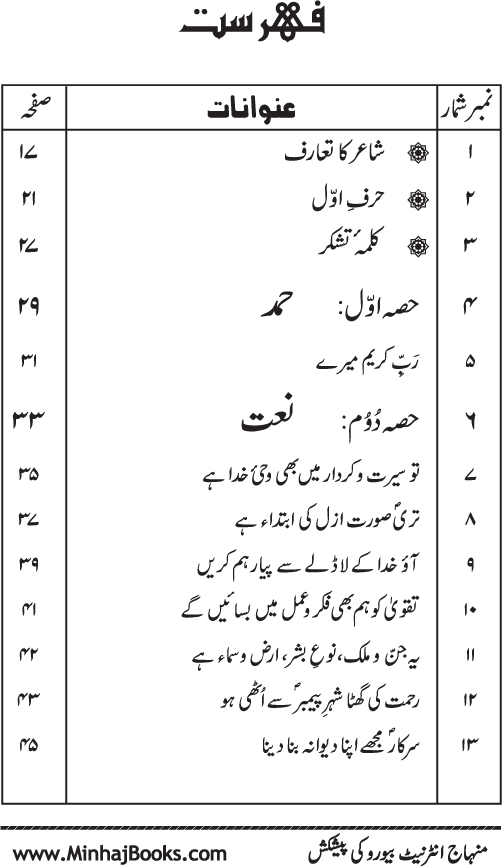 فہرست
نمبر شمار عنوانات صفحہ
۱ شاعر کا تعارف ۱۷
۲ حرفِ اوّل ۲۱
۳ کلمۂ تشکر ۲۷
۴ حصہ اوّل: حمد ۲۹
۵ رَبِّ کریم میرے ۳۱
۶ حصہ دُوُم: نعت ۳۳
۷ تو سیرت و کردار میں بھی وحیٔ خدا ہے ۳۵
۸ تریؐ صورت ازل کی ابتداء ہے ۳۷
۹ آؤ خدا کے لاڈلے سے پیار ہم کریں ۳۹
۱۰ تقویٰ کو ہم بھی فکر و عمل میں بسائیں گے ۴۱
۱۱ یہ جنّ و ملک، نوعِ بشر، ارض و سماء ہے ۴۲
۱۲ رحمت کی گھٹا شہرِ پیمبرؐ سے اُٹھی ہو ۴۳
۱۳ سرکارؐ مجھے اپنا دیوانہ بنا دینا ۴۵
منہاج انٹرنیٹ بیورو کی پیشکش www.MinhajBooks.com